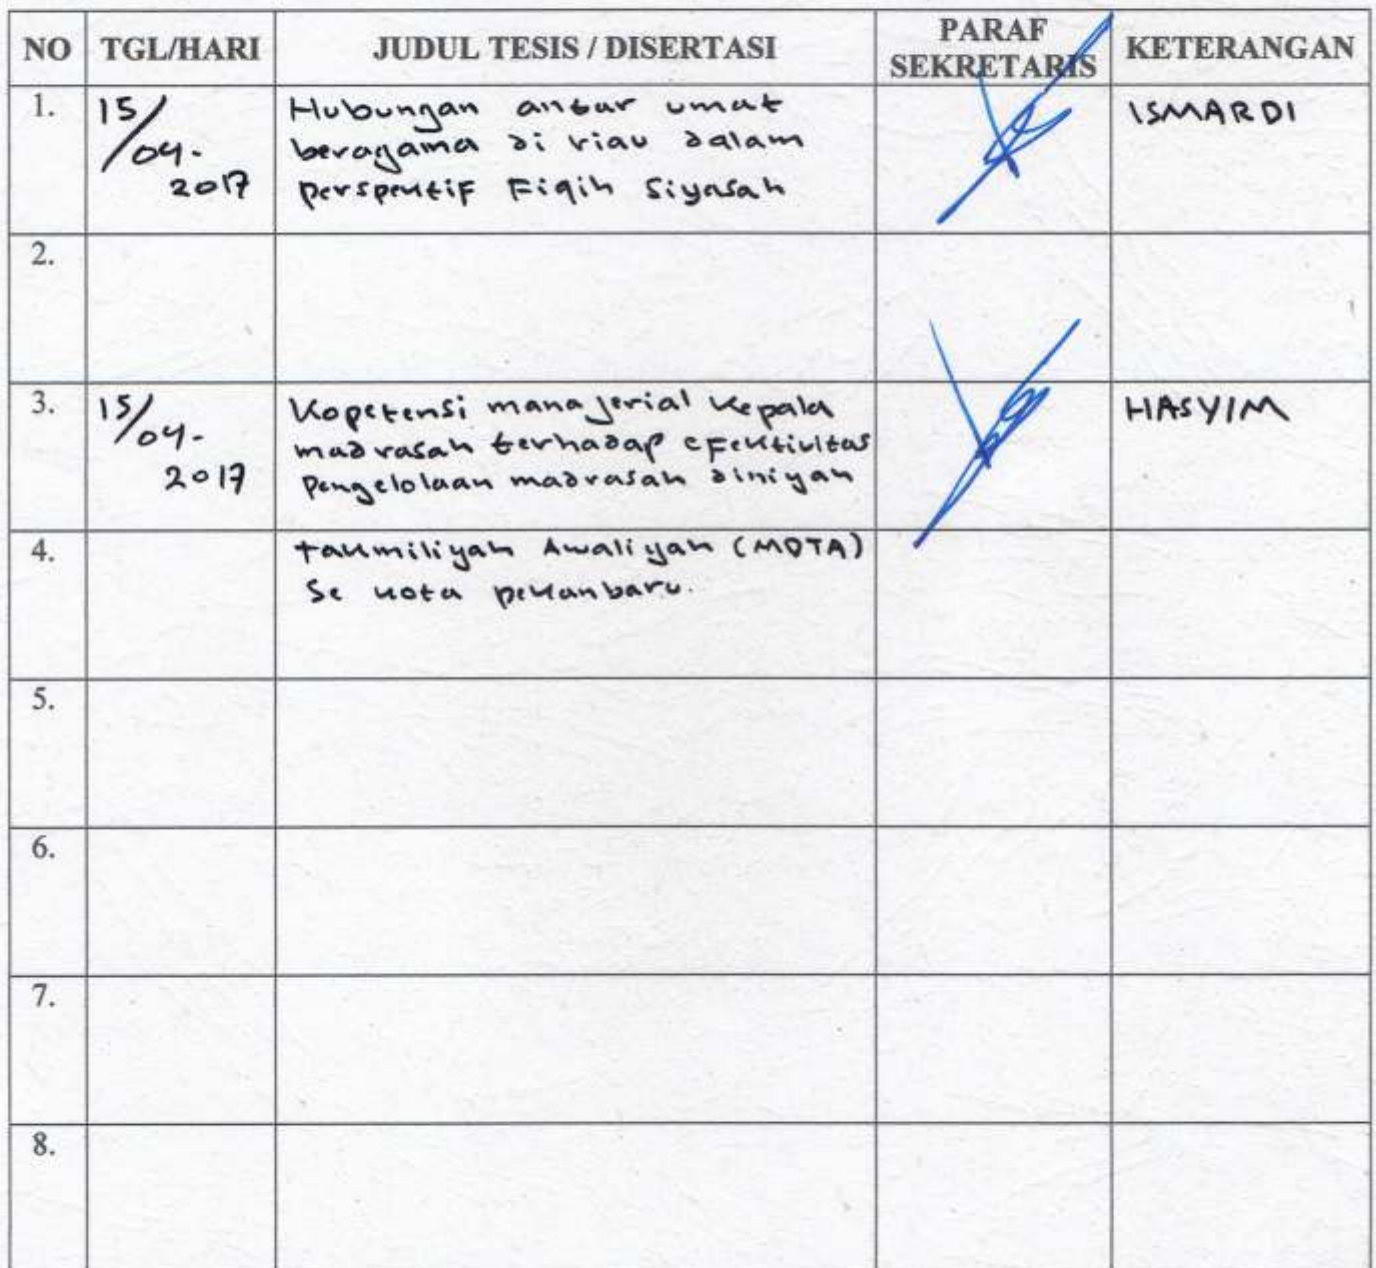 NO TGL/HARI JUDUL TESIS / DISERTASI PARAF SEKRETARIS KETERANGAN
1. 15/04-2017 Hubungan antar umat ISMARDI
beragama di riau dalam
perspektif Fiqih Siyasah
2.
3. 15/04-2017 Kopetensi manajerial kepala HASYIM
madrasah terhadap efektivitas
pengelolaan madrasah diniyah
4. takmiliyah Awaliyah (MDTA)
Se kota pekanbaru.
5.
6.
7.
8.